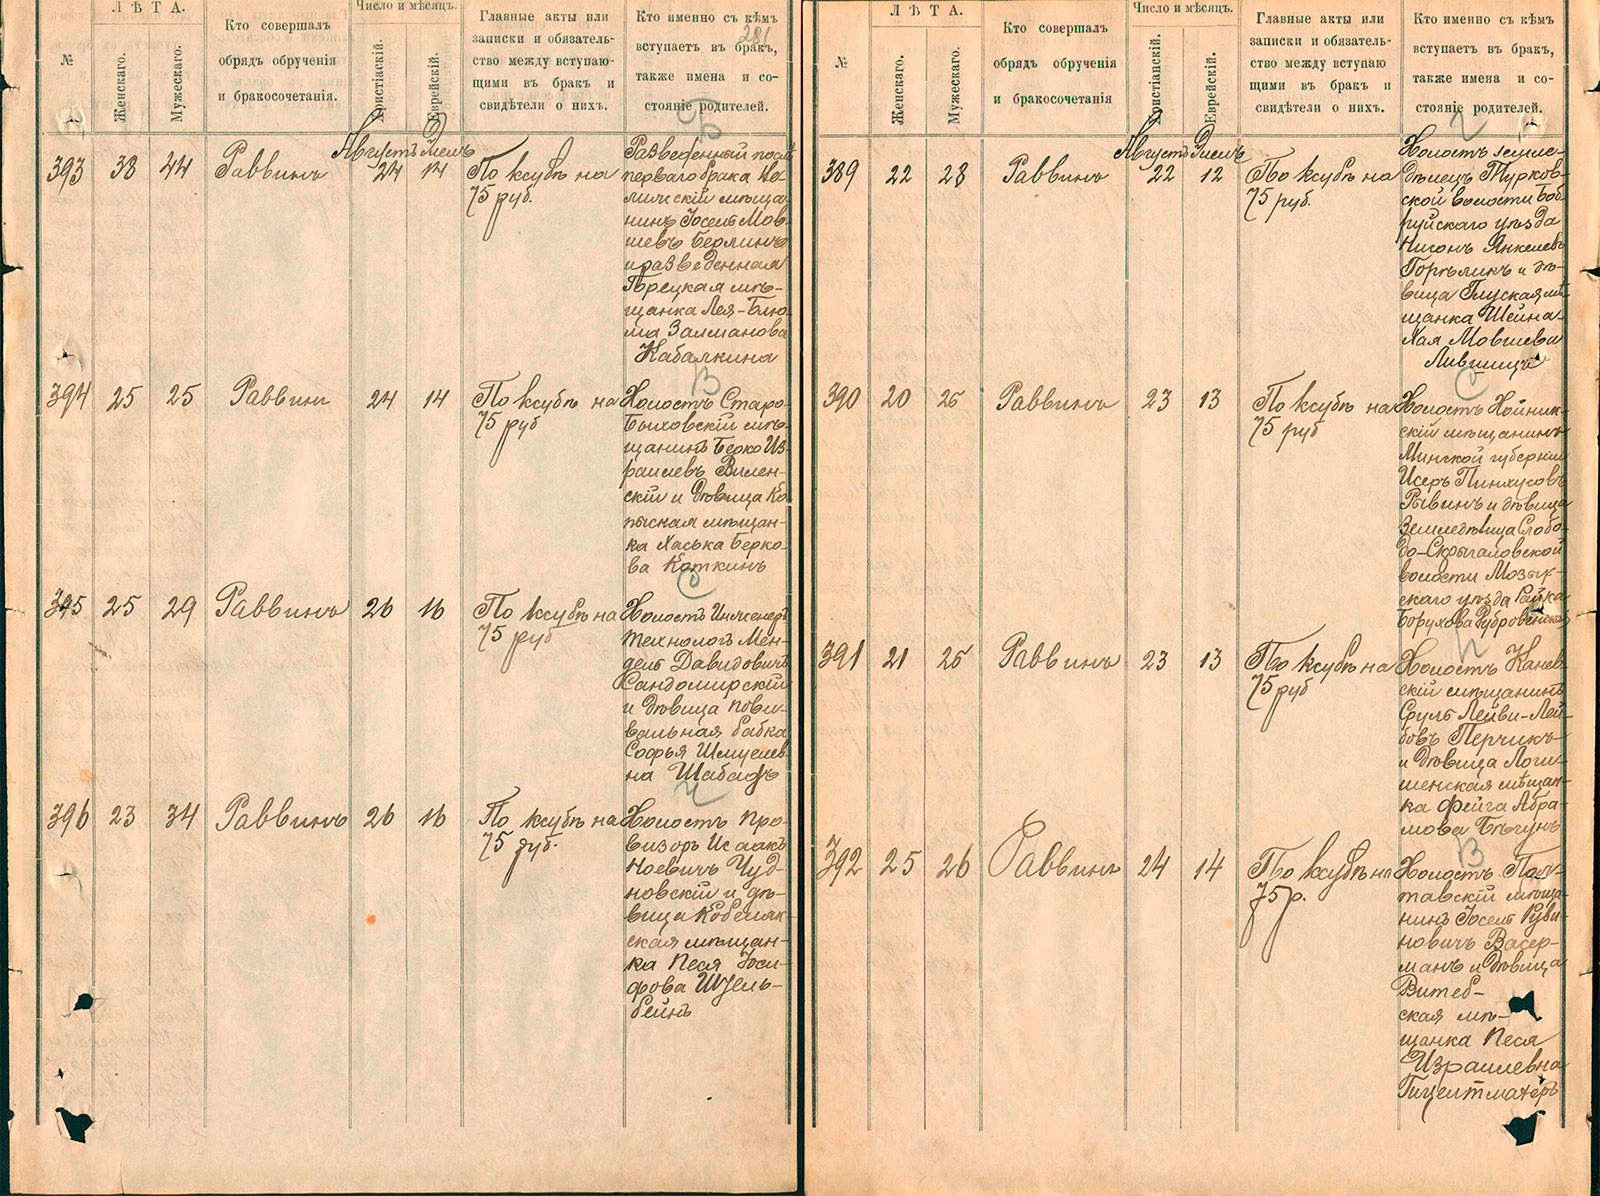 ЛѢТА.
№
Женскаго.
Мужескаго.
Кто совершалъ
обрядъ обрученія
и бракосочетанія.
Число и мѣсяцъ.
Христіаскій.
Еврейскій.
Главные акты или
записки и обязатель-
ство между вступаю-
щими въ бракъ и
свидѣтели о нихъ.
Кто именно съ кѣмъ
вступаетъ въ бракъ,
также имена и со-
стояніе родителей.
281
Б
Августъ Элелъ
393 38 44 Раввинъ 24 14
По ксубѣ на
75 руб.
Разведенный послѣ
перваго брака
мѣща-
нинъ Іосель Мов-
шевъ Берлинъ
и разведенная
Горецкая мѣ-
щанка Лея-Блю-
ма Залманова
Кабалкина
В
394 25 25 Раввин 24 14
По ксубѣ на
75 руб
Холостъ Старо-
Быховскій мѣ-
щанинъ Берко Из-
раилевъ Вилен-
скій и дѣвица Ко-
пыская мѣщан-
ка Хаська Берко-
ва Коткинъ
С
395 25 29 Раввинъ 26 16
По ксубѣ на
75 руб
Холостъ Инженеръ
технологъ Мен-
дель Давидовичъ
Сандомирскій
и дѣвица пови-
вальная бабка
Софья Шмуелев-
на Шабадъ
Ч
396 23 34 Раввинъ 26 16
По ксубѣ на
75 руб.
Холостъ про-
визоръ Исаакъ
Ноевичъ Чуд-
новскій и дѣ-
вица Кобеляк-
ская мѣщан-
ка Песя Іоси-
фова Шуель-
бейнъ
ЛѢТА.
№
Женскаго.
Мужескаго.
Кто совершалъ
обрядъ обрученія
и бракосочетанія
Число и мѣсяцъ.
Христіанскій.
Еврейскій.
Главные акты или
записки и обязатель-
ство между вступаю
щими въ бракъ и
свидѣтели о нихъ.
Кто именно съ кѣмъ
вступаетъ въ бракъ,
также имена и со-
стояніе родителей.
Августъ Элелъ
389 22 28 Раввинъ 22 12
По ксубѣ на
75 руб.
Холостъ земле-
дѣлецъ Турков-
ской волости Боб-
руйскаго уѣзда
Нисонъ Янкелевъ
Горѣликъ и дѣ-
вица Глуская мѣ-
щанка Шейна-
Хая Мовшева
Лившицъ
С
390 20 25 Раввинъ 23 13
По ксубѣ на
75 руб
Холостъ Хойник-
скій мѣщанинъ
Минской губерніи
Исеръ Пинхусовъ
Рывинъ и дѣвица
Земледѣлица Слобо-
до-Скрыгаловской
волости Мозыр-
скаго уѣзда Райка
Борухова Дубровенская
391 21 25 Раввинъ 23 13
По ксубѣ на
75 руб
Холостъ Канев-
скій мѣщанинъ
Сруль Лейви-Лей-
бовъ Перчикъ
и дѣвица Логи-
шенская мѣщан-
ка Фейга Абра-
мова Бѣгунъ
В
392 25 26 Раввинъ 24 14
По ксубѣ на
75 р.
Холостъ Пол-
тавскій мѣща-
нинъ Іосель Руви-
новичъ Васер-
манъ и дѣвица
Витеб-
ская мѣ-
щанка Песя
Израилевна
Гицелтмахеръ